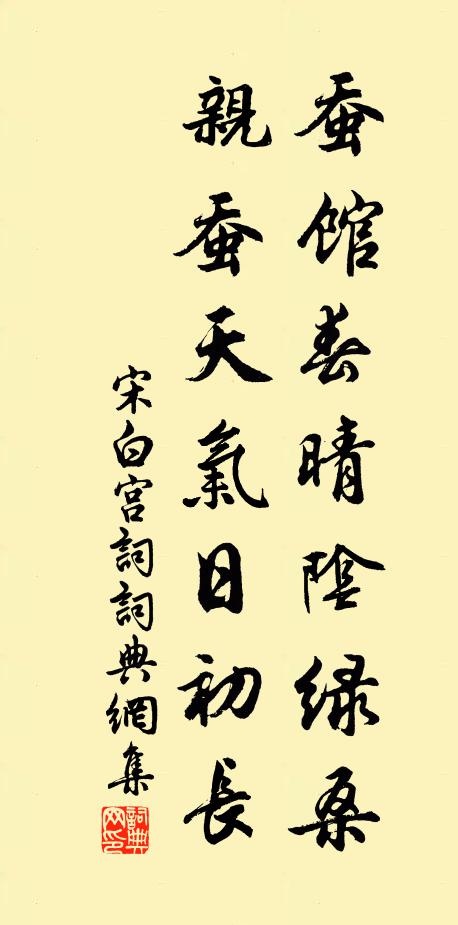 蚕館春晴陰緑桑
親蚕天氣日初長
宋白宫詞詞典網集
詞典网印